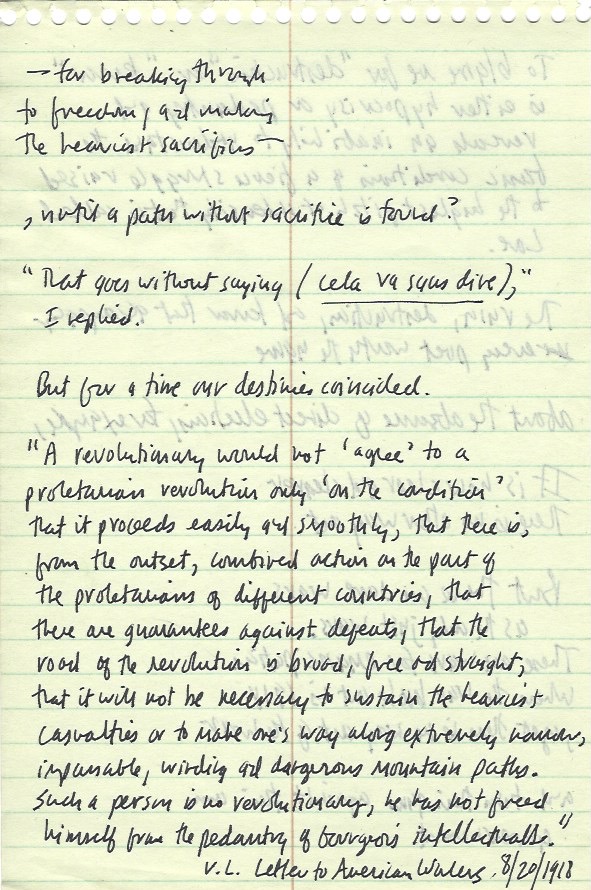 — for breaking through
to freedom, and making
the heaviest sacrifices —
, until a path without sacrifice is found?
"That goes without saying (cela va sans dire),"
I replied.
But for a time our destinies coincided.
"A revolutionary would not 'agree' to a
proletarian revolution only 'on the condition'
that it proceeds easily and smoothly, that there is,
from the outset, combined action on the part of
the proletarians of different countries, that
there are guarantees against defeats, that the
road of the revolution is broad, free and straight,
that it will not be necessary to sustain the heaviest
casualties or to make one's way along extremely narrow,
impassable, winding and dangerous mountain paths.
Such a person is no revolutionary, he has not freed
himself from the pedantry of bourgeois intellectuals."
V.L. Letter to American Workers, 8/20/1918